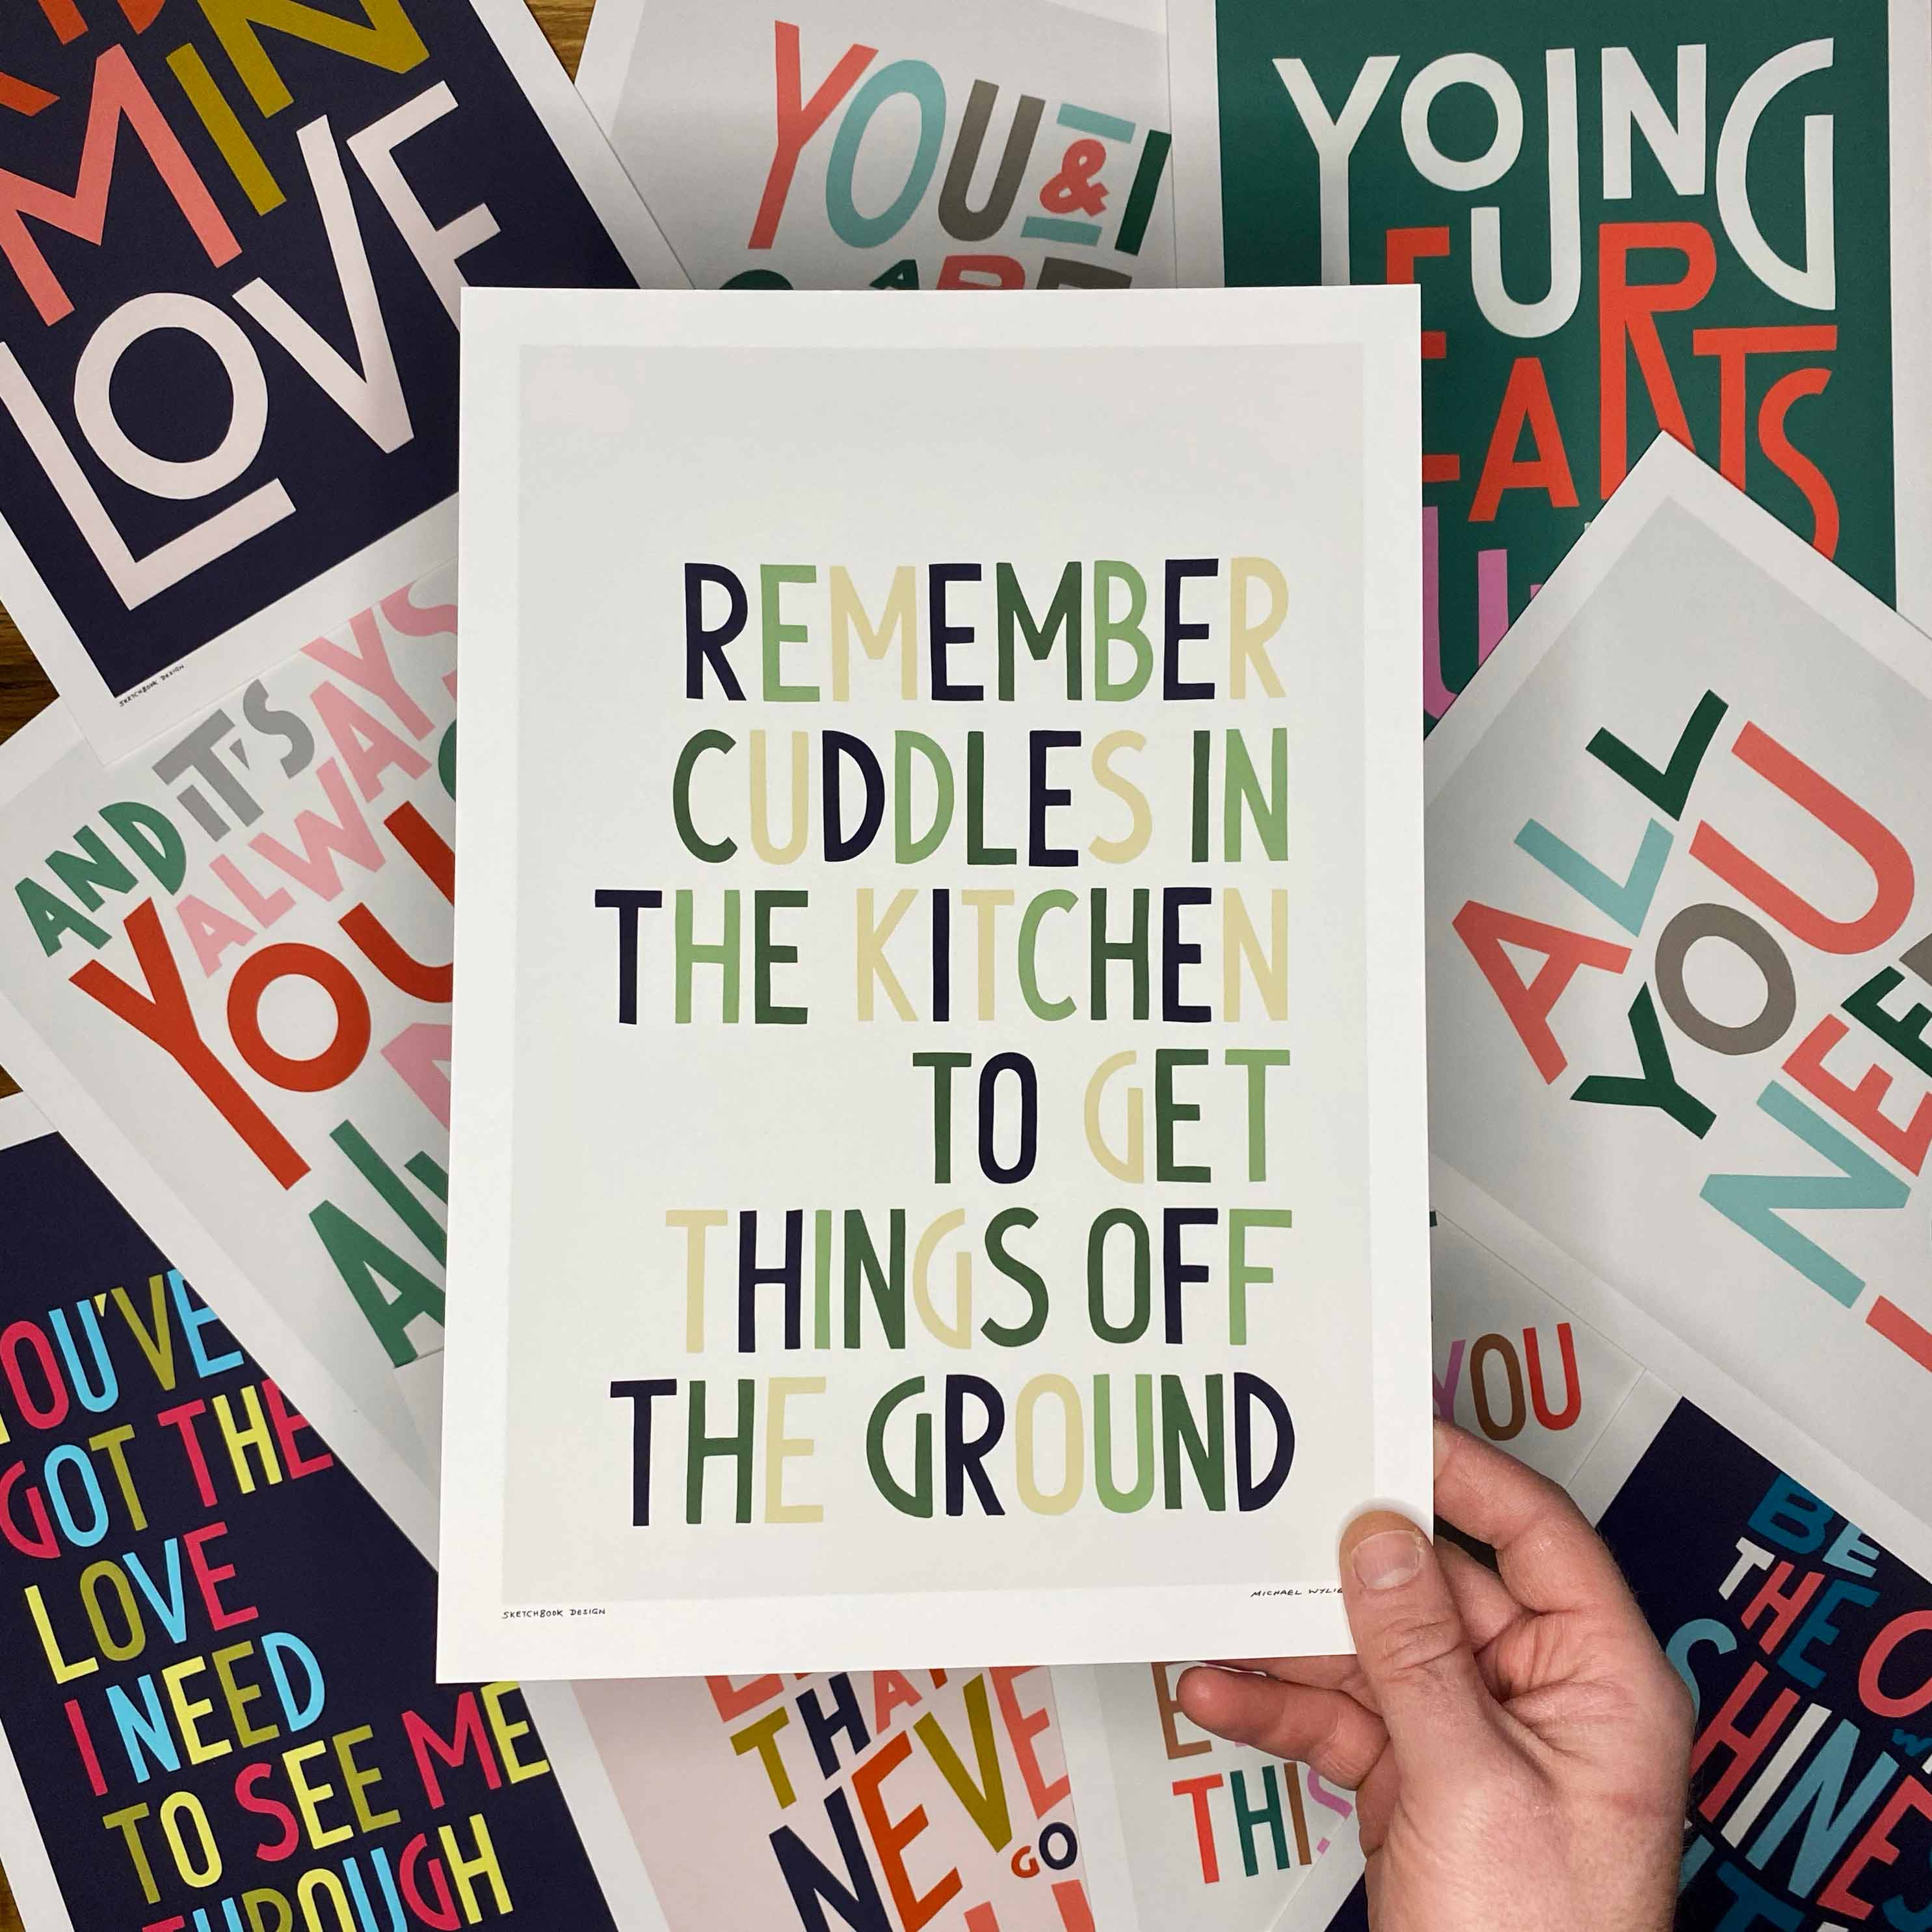 MIN
LOVE
SKETCHBOOK DESIGN
YOU & I
ARE
YOUNG
HEARTS
AND IT'S
ALWAYS
YOU
ALL
YOU
NEED
YOU'VE
GOT THE
LOVE
I NEED
TO SEE ME
THROUGH
REMEMBER
CUDDLES IN
THE KITCHEN
TO GET
THINGS OFF
THE GROUND
SKETCHBOOK DESIGN
MICHAEL WYLIE
YOU
THAT
NEVE
GO
THIS
BE
THE O
SHINES